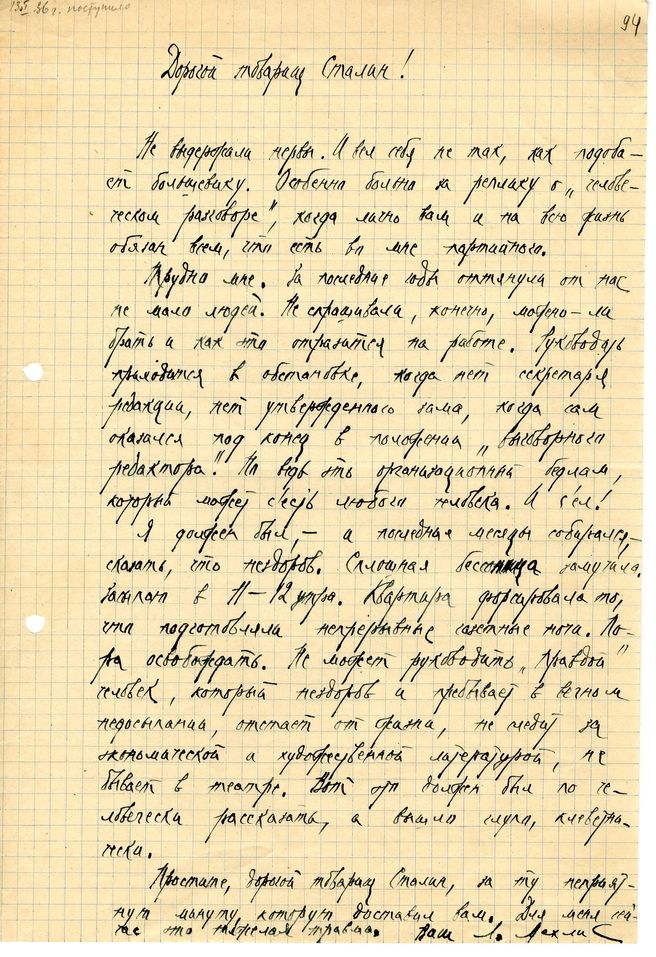 13/I 36 г. поступило
94
Дорогой товарищ Сталин!
Не выдержали нервы. И вел себя не так, как подоба-
ет большевику. Особенно больно за реплику о „челове-
ческом разговоре“, когда лично вам и на всю жизнь
обязан всем, что есть во мне партийного.
Трудно мне. За последние годы оттянули от нас
не мало людей. Не спрашивали, конечно, можно-ли
брать и как это отразится на работе. Руководить
приходится в обстановке, когда нет секретаря
редакции, нет утвержденного зама, когда сам
оказался под конец в положении „выговорного
редактора“. Но ведь это организационный бедлам,
который может с'есть любого человека. И с'ел!
Я должен был, – и последние месяцы собирался, –
сказать, что нездоров. Сплошная бессонница замучила.
Засыпаю в 11–12 утра. Квартира форсировала то,
что подготовляли непрерывные газетные ночи. По-
ра освобождать. Не может руководить „Правдой“
человек, который нездоров и пребывает в вечном
недосыпании, отстает от жизни, не следит за
экономической и художественной литературой, не
бывает в театре. Вот это должен был по че-
ловечески рассказать, а вышло глупо, клеветни-
чески.
Простите, дорогой товарищ Сталин, за ту неприят-
ную минуту, которую доставил вам. Для меня сей-
час это тяжелая травма. Ваш Л. Мехлис